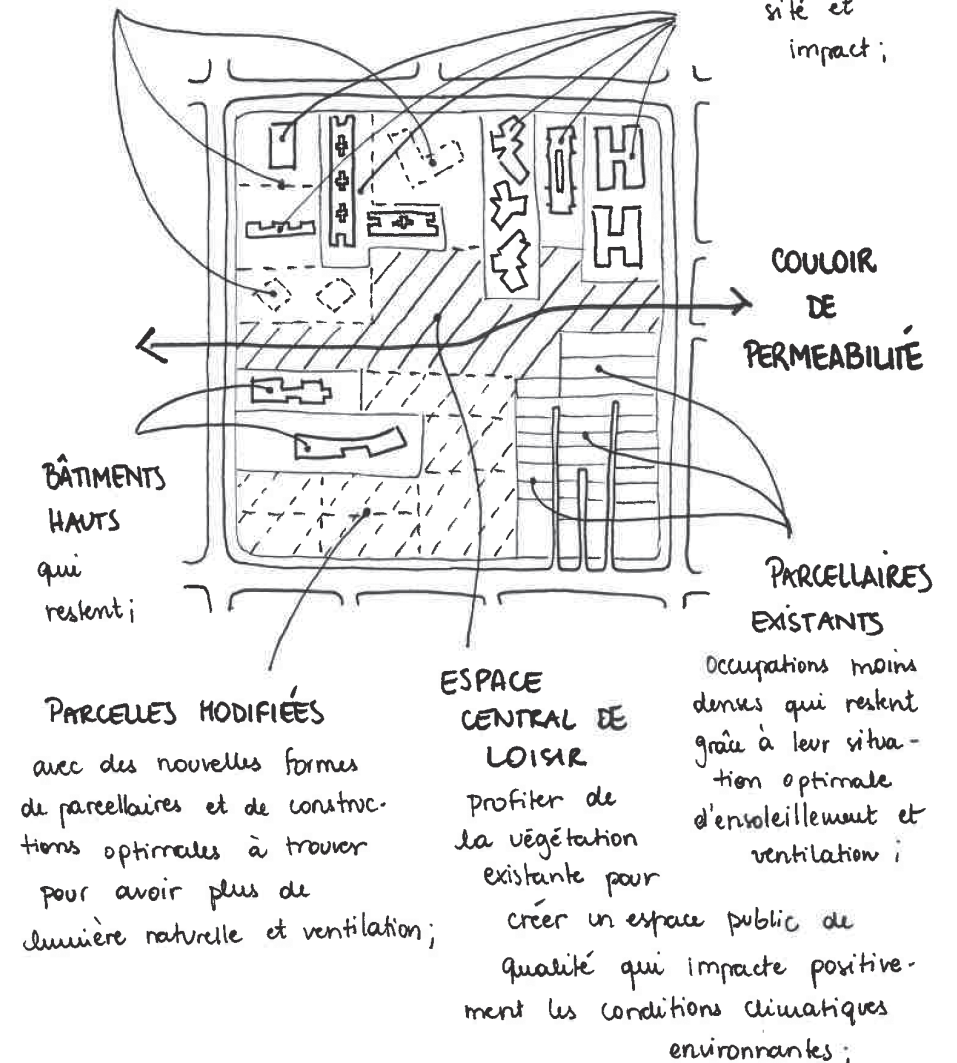 sité et
impact;
COULOIR
DE
PERMEABILITÉ
BÂTIMENTS
HAUTS
qui
restent;
PARCELLAIRES
EXISTANTS
Occupations moins
denses qui restent
grâce à leur situa-
tion optimale
d'ensoleillement et
ventilation;
PARCELLES MODIFIÉES
avec des nouvelles formes
de parcellaires et de construc-
tions optimales à trouver
pour avoir plus de
lumière naturelle et ventilation;
ESPACE
CENTRAL DE
LOISIR
profiter de
la végétation
existante pour
créer un espace public de
qualité qui impacte positive-
ment les conditions climatiques
environnantes;